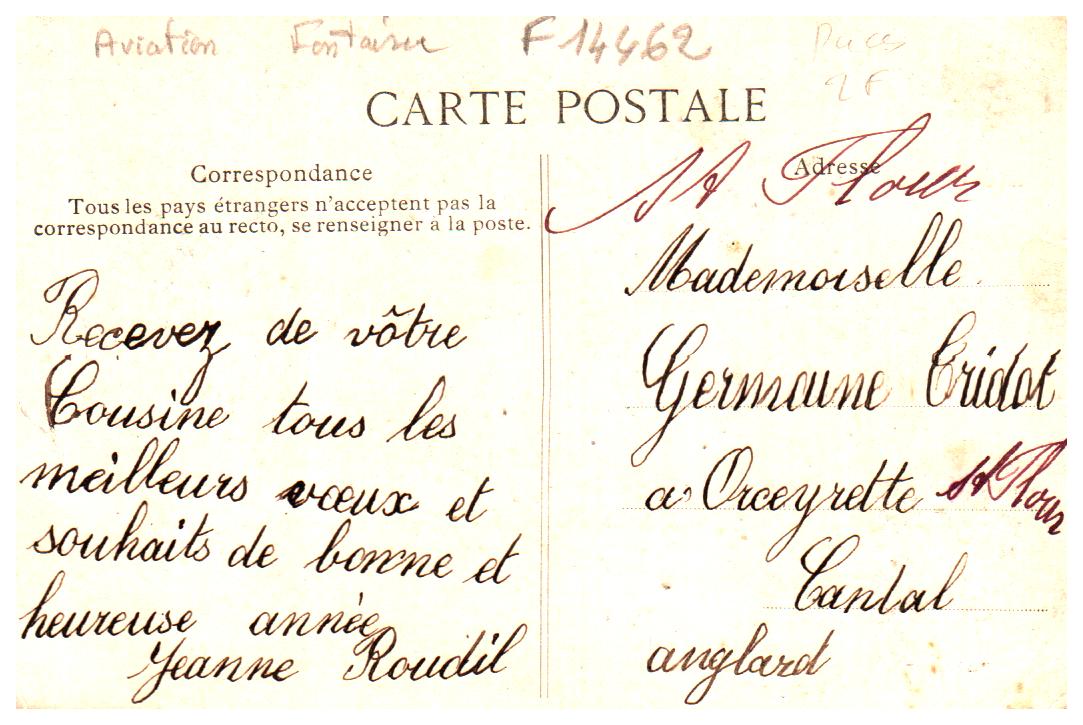 Aviation Fontaine F 14462 Puces
2 F
CARTE POSTALE
Correspondance
Tous les pays étrangers n'acceptent pas la
correspondance au recto, se renseigner à la poste.
Recevez de vôtre
Cousine tous les
meilleurs vœux et
souhaits de bonne et
heureuse année
Jeanne Roudil
Adresse
St Flour
Mademoiselle
Germaine Cridot
a Orceyrette St Flour
Cantal
anglard